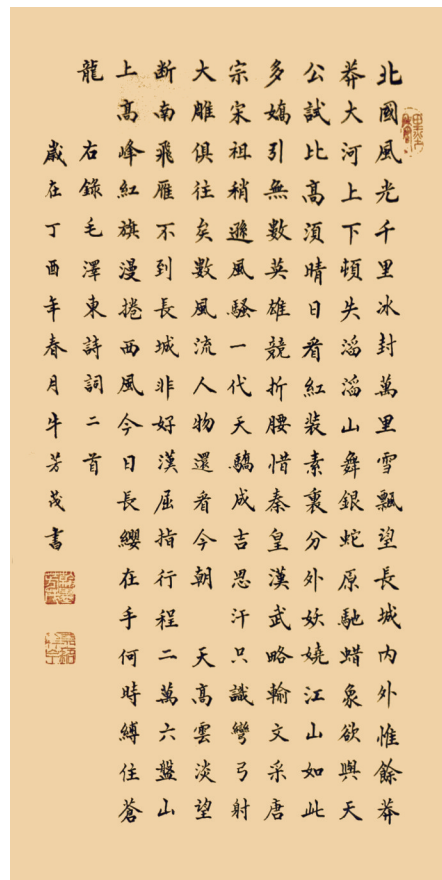 北國風光千里冰封萬里雪飄望長城内外惟餘莽
莽大河上下頓失滔滔山舞銀蛇原馳蜡象欲與天
公試比高須晴日看紅裝素裹分外妖嬈江山如此
多嬌引無數英雄競折腰惜秦皇漢武略輸文采唐
宗宋祖稍遜風騷一代天驕成吉思汗只識彎弓射
大雕俱往矣數風流人物還看今朝 天高雲淡望
断南飛雁不到長城非好漢屈指行程二萬六盤山
上高峰紅旗漫捲西風今日長纓在手何時縛住蒼
龍 右錄毛澤東詩詞二首
歲在丁酉年春月牛芳茂書